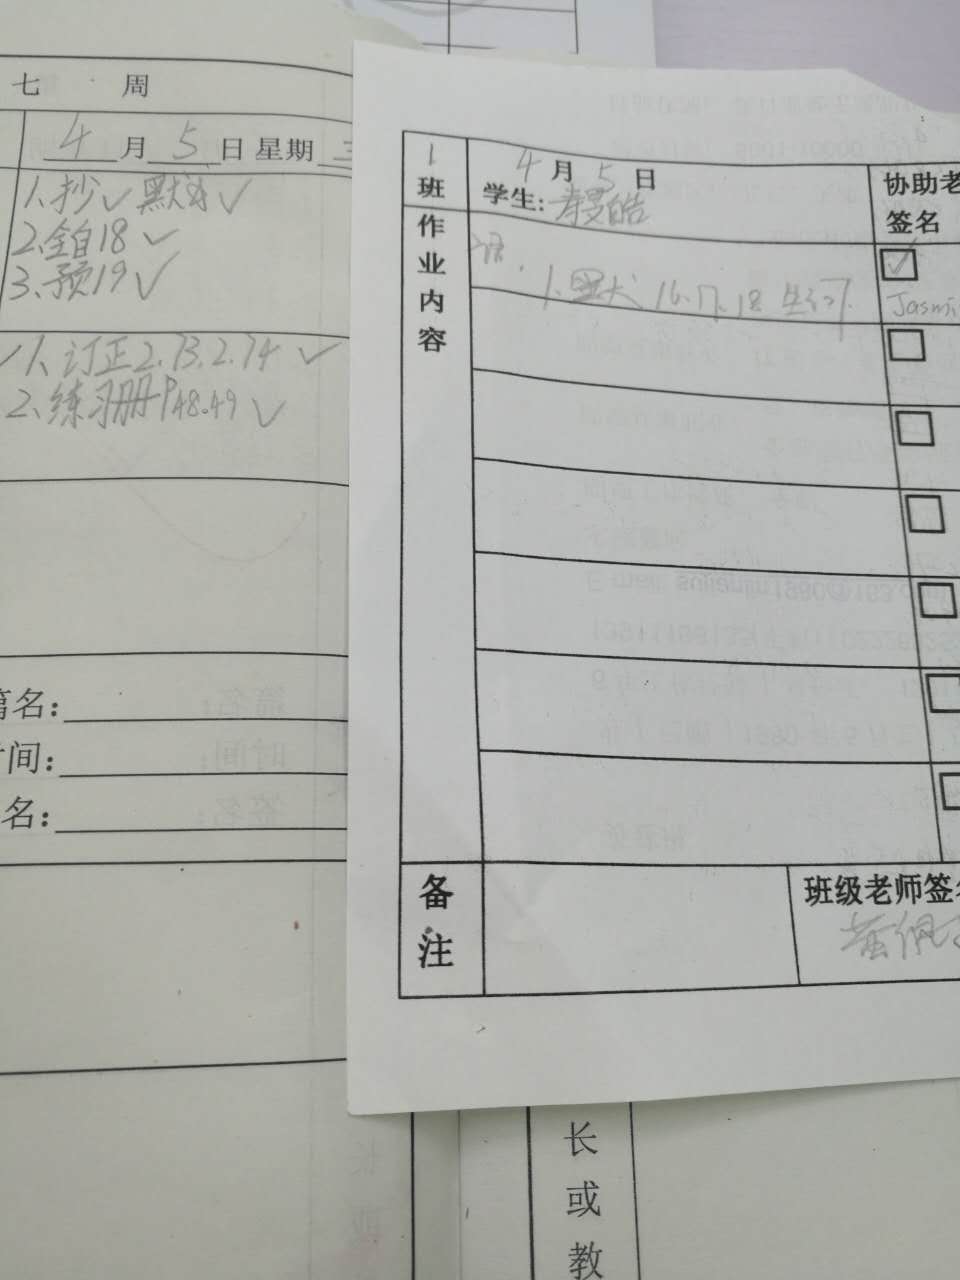 七 周
4月5日 星期三
1、抄✓ 默✓
2、全白18 ✓
3、预19 ✓
✓1、订正2.73.2.74 ✓
2、练习册P48.49 ✓
篇名:
时间:
名:
1班
4月5日
学生:
协助老
签名
作业内容
语.
1、默 16.17.18 生词
☑
Jasmi
□
□
□
□
□
□
备注
班级老师签名
长或教